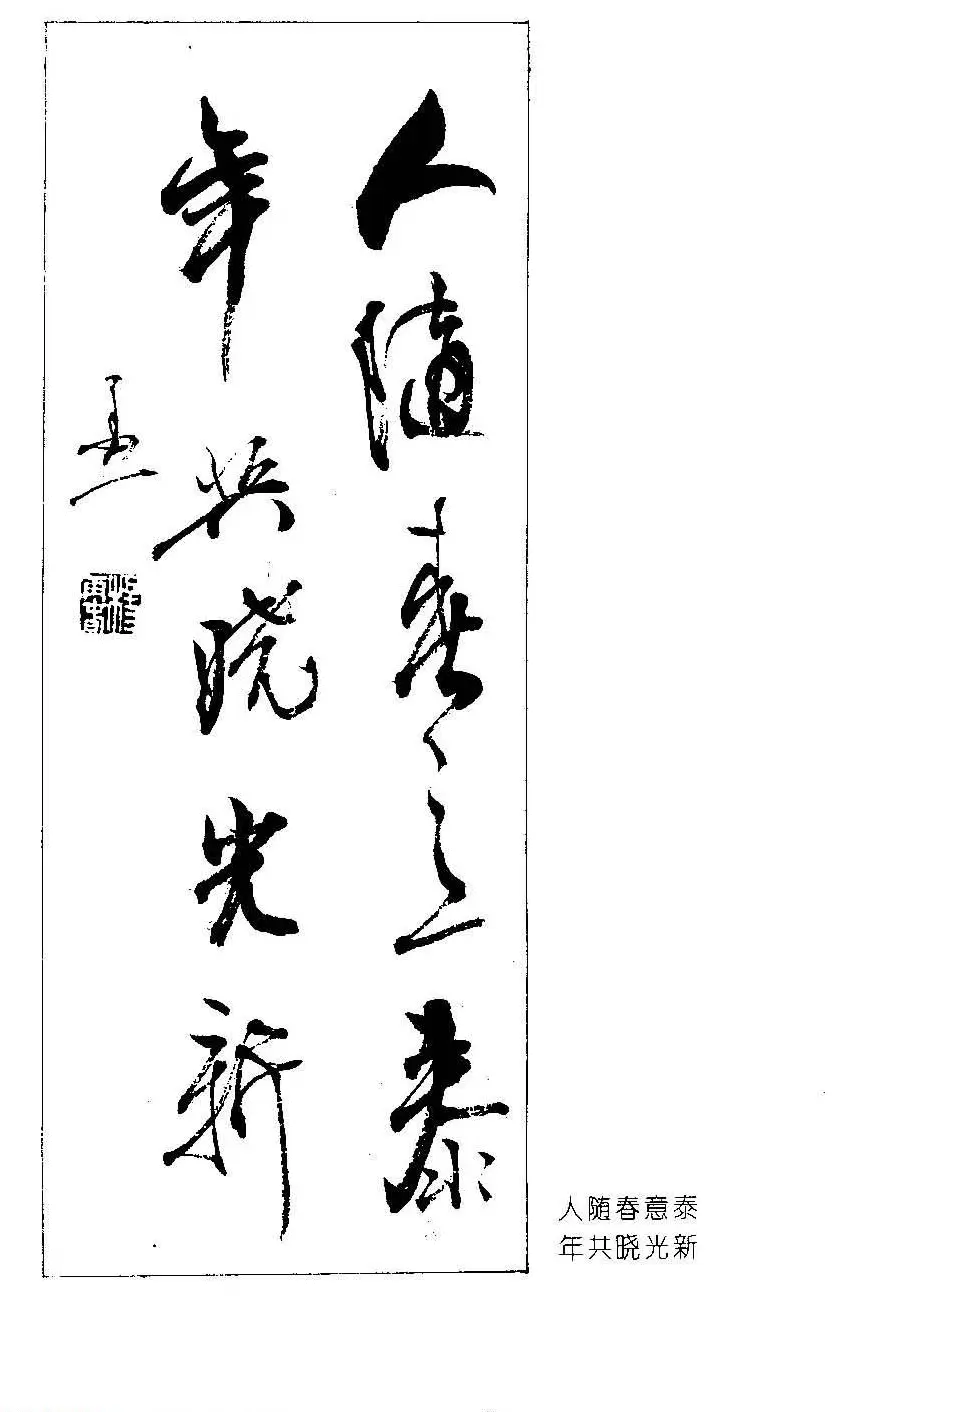 人随春意泰
年共晓光新
人随春意泰
年共晓光新